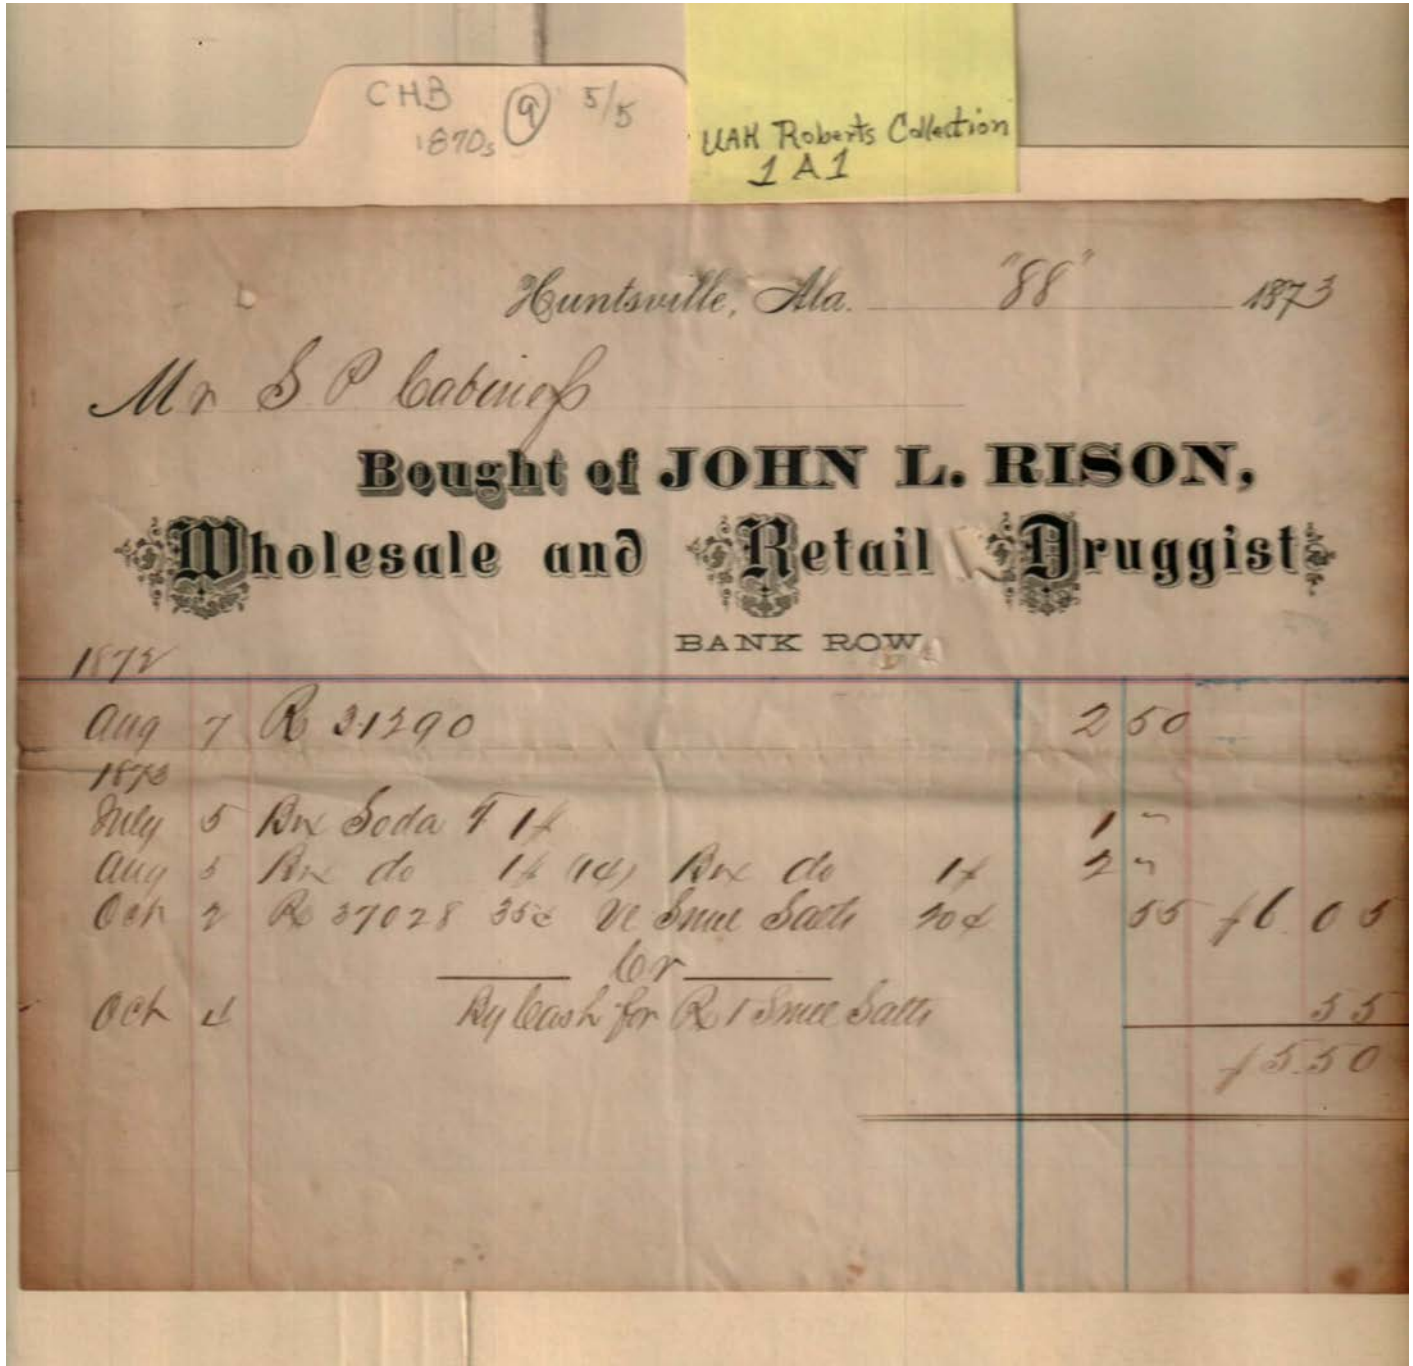 CHB 9 5/5
1870s
UAH Roberts Collection
1 A 1
Huntsville, Ala. "88" 1873
Mr S P Cabiness
Bought of JOHN L. RISON,
Wholesale and Retail Druggist
BANK ROW
1872
Aug 7 R 31290 2 50
1873
July 5 Box Soda 1 "
Aug 5 Box do (14) Box do 2 "
Oct 2 R 37028 35c Smel Salts 20c 55 $6.05
Cr
Oct 4 By Cash for R & Smel Salts 55
$5.50